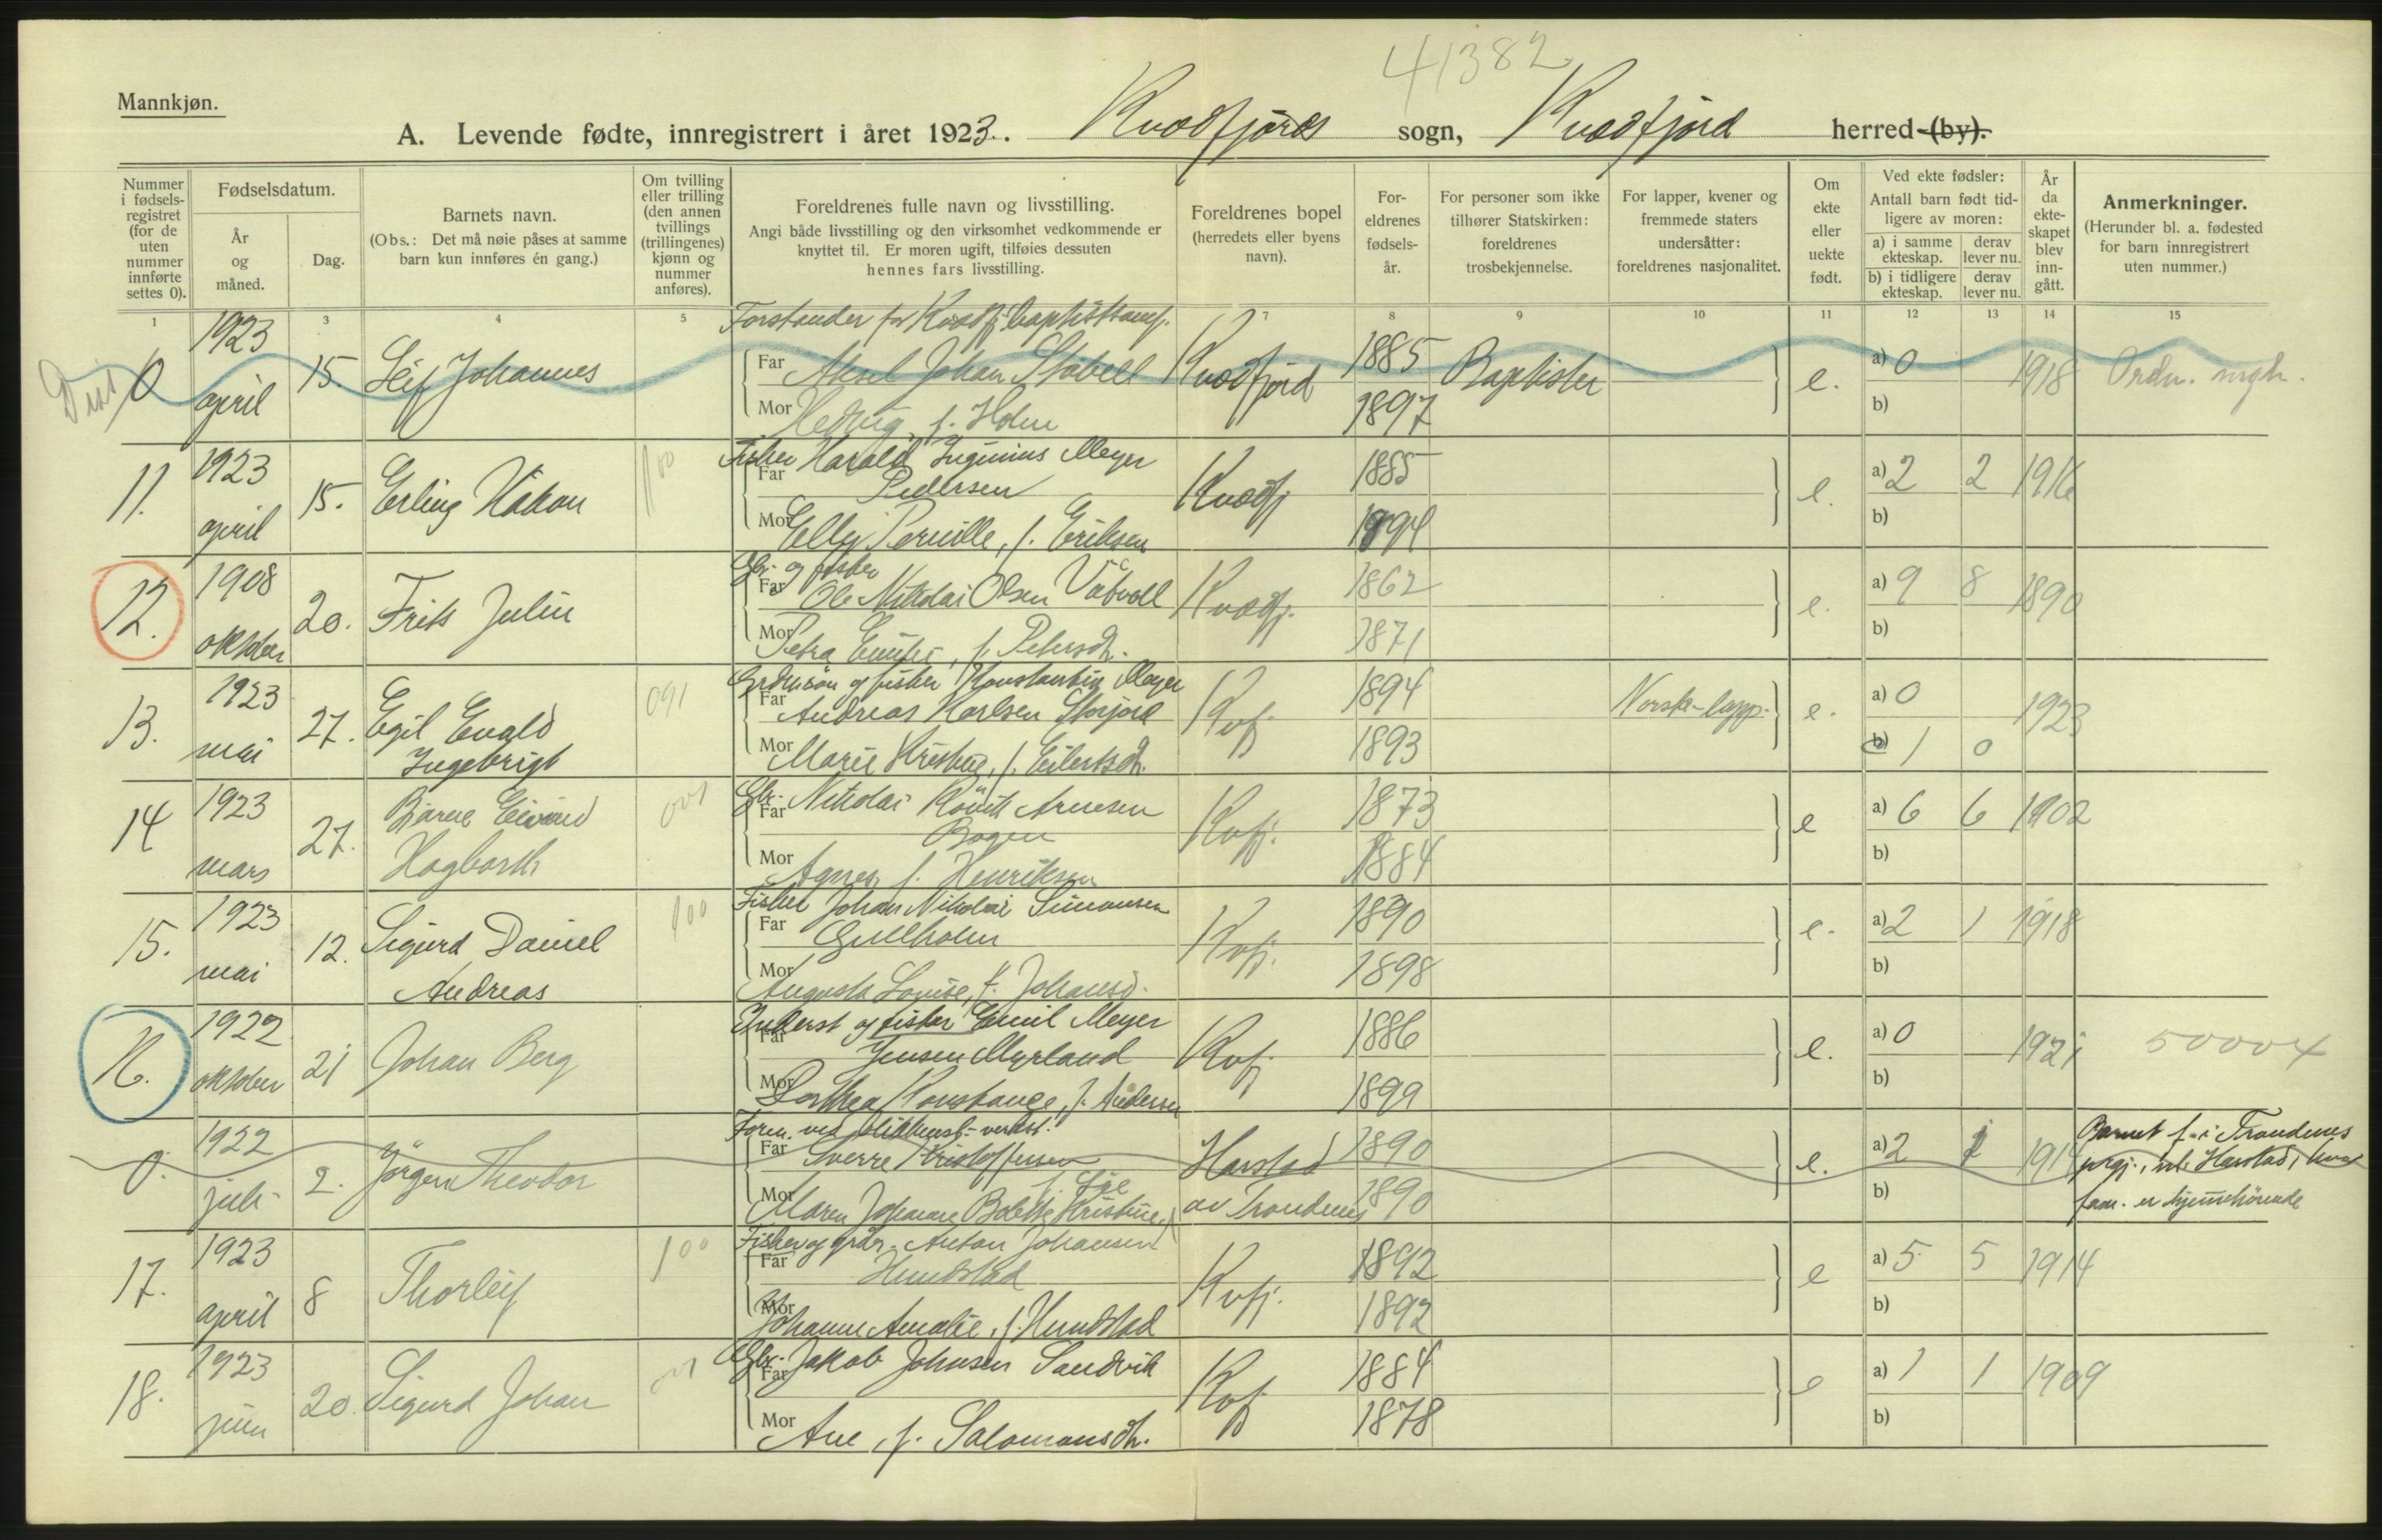 41382
Mannkjøn.
A. Levende fødte, innregistrert i året 1923. Kvædfjords sogn, Kvædfjord herred (by).
Nummer i fødsels-registret (for de uten nummer innførte settes 0).
Fødselsdatum.
År og måned.
Dag.
Barnets navn.
(Obs.: Det må nøie påses at samme barn kun innføres én gang.)
Om tvilling eller trilling (den annen tvillings (trillingenes) kjønn og nummer anføres).
Foreldrenes fulle navn og livsstilling.
Angi både livsstilling og den virksomhet vedkommende er knyttet til. Er moren ugift, tilføies dessuten hennes fars livsstilling.
Foreldrenes bopel (herredets eller byens navn).
For-eldrenes fødsels-år.
For personer som ikke tilhører Statskirken: foreldrenes trosbekjennelse.
For lapper, kvener og fremmede staters undersåtter: foreldrenes nasjonalitet.
Om ekte eller uekte født.
Ved ekte fødsler: Antall barn født tid-ligere av moren:
a) i samme ekteskap. derav lever nu.
b) i tidligere ekteskap. derav lever nu.
År da ekte-skapet blev inn-gått.
Anmerkninger.
(Herunder bl. a. fødested for barn innregistrert uten nummer.)
1 3 4 5 7 8 9 10 11 12 13 14 15
Forstander for Kvædfj. baptistsamf.
Diss 0 1923 april 15. Leif Johannes Far Aksel Johan Stabell Kvædfjord 1885 Baptister e. a) 0 1918 Ordn. mgh.
Mor Hedvig, f. Holm 1897 b)
11. 1923 april 15. Erling Håkon 100 Fisker Harald Ingenius Meyer
Far Pedersen Kvædfj 1885 e. a) 2 2 1916
Mor Elly Pernille, f. Eriksen 1894 b)
12. 1908 oktober 20. Frits Julin Gbr. og fisker
Far Ole Nikolai Olsen Våtvoll Kvædfj. 1862 e. a) 9 8 1890
Mor Petra f. Petersdt. 1871 b)
13. 1923 mai 27. Egil Evald Ingebrigt 091 Grdmsøn og fisker Konstantin Meyer
Far Andreas Karlsen Storjord Kvfj. 1894 Norsk-lapp. e. a) 0 1923
Mor Marie f. Eilertsdt. 1893 b) 1 0
14 1923 mars 27. Bjarne Eivind Hagbarth 001 Gbr. Nikolai Arnesen
Far Bogen Kvfj. 1873 e a) 6 6 1902
Mor Agnes, f. Henriksen 1884 b)
15. 1923 mai 12. Sigurd Daniel Andreas 100 Fisker Johan Nikolai Simonsen
Far Gullholm Kvfj. 1890 e. a) 2 1 1918
Mor Augusta Lovise, f. Johansd. 1898 b)
16. 1922 oktober 21 Johan Berg Inderst og fisker Emil Meyer
Far Jensen Myrland Kvfj. 1886 e. a) 0 1921 50004
Mor Dorthea Konstance, f. Andersen 1899 b)
0. 1922 juli 2. Jörgen Theodor Form. ved verkst.
Far Sverre Kristoffersen Harstad 1890 e. a) 2 1914 Barnet f. i Trondenes
Mor Maren Johanne Bolette Kristine, f. av Trondenes 1890 b) prgj., Harstad, hvor
fam. er hjemmehörende
17. 1923 april 8 Thorleif 100 Fisker og grdbr. Anton Johansen
Far Hundstad Kvfj. 1892 e a) 5 5 1914
Mor Johanne Amalie, f. Hundstad 1892 b)
18. 1923 juni 20 Sigurd Johan 001 Gbr. Jakob Johnsen Sandvik
Far Kvfj 1884 e a) 1 1 1909
Mor Ane, f. Salomonsdt. 1878 b)